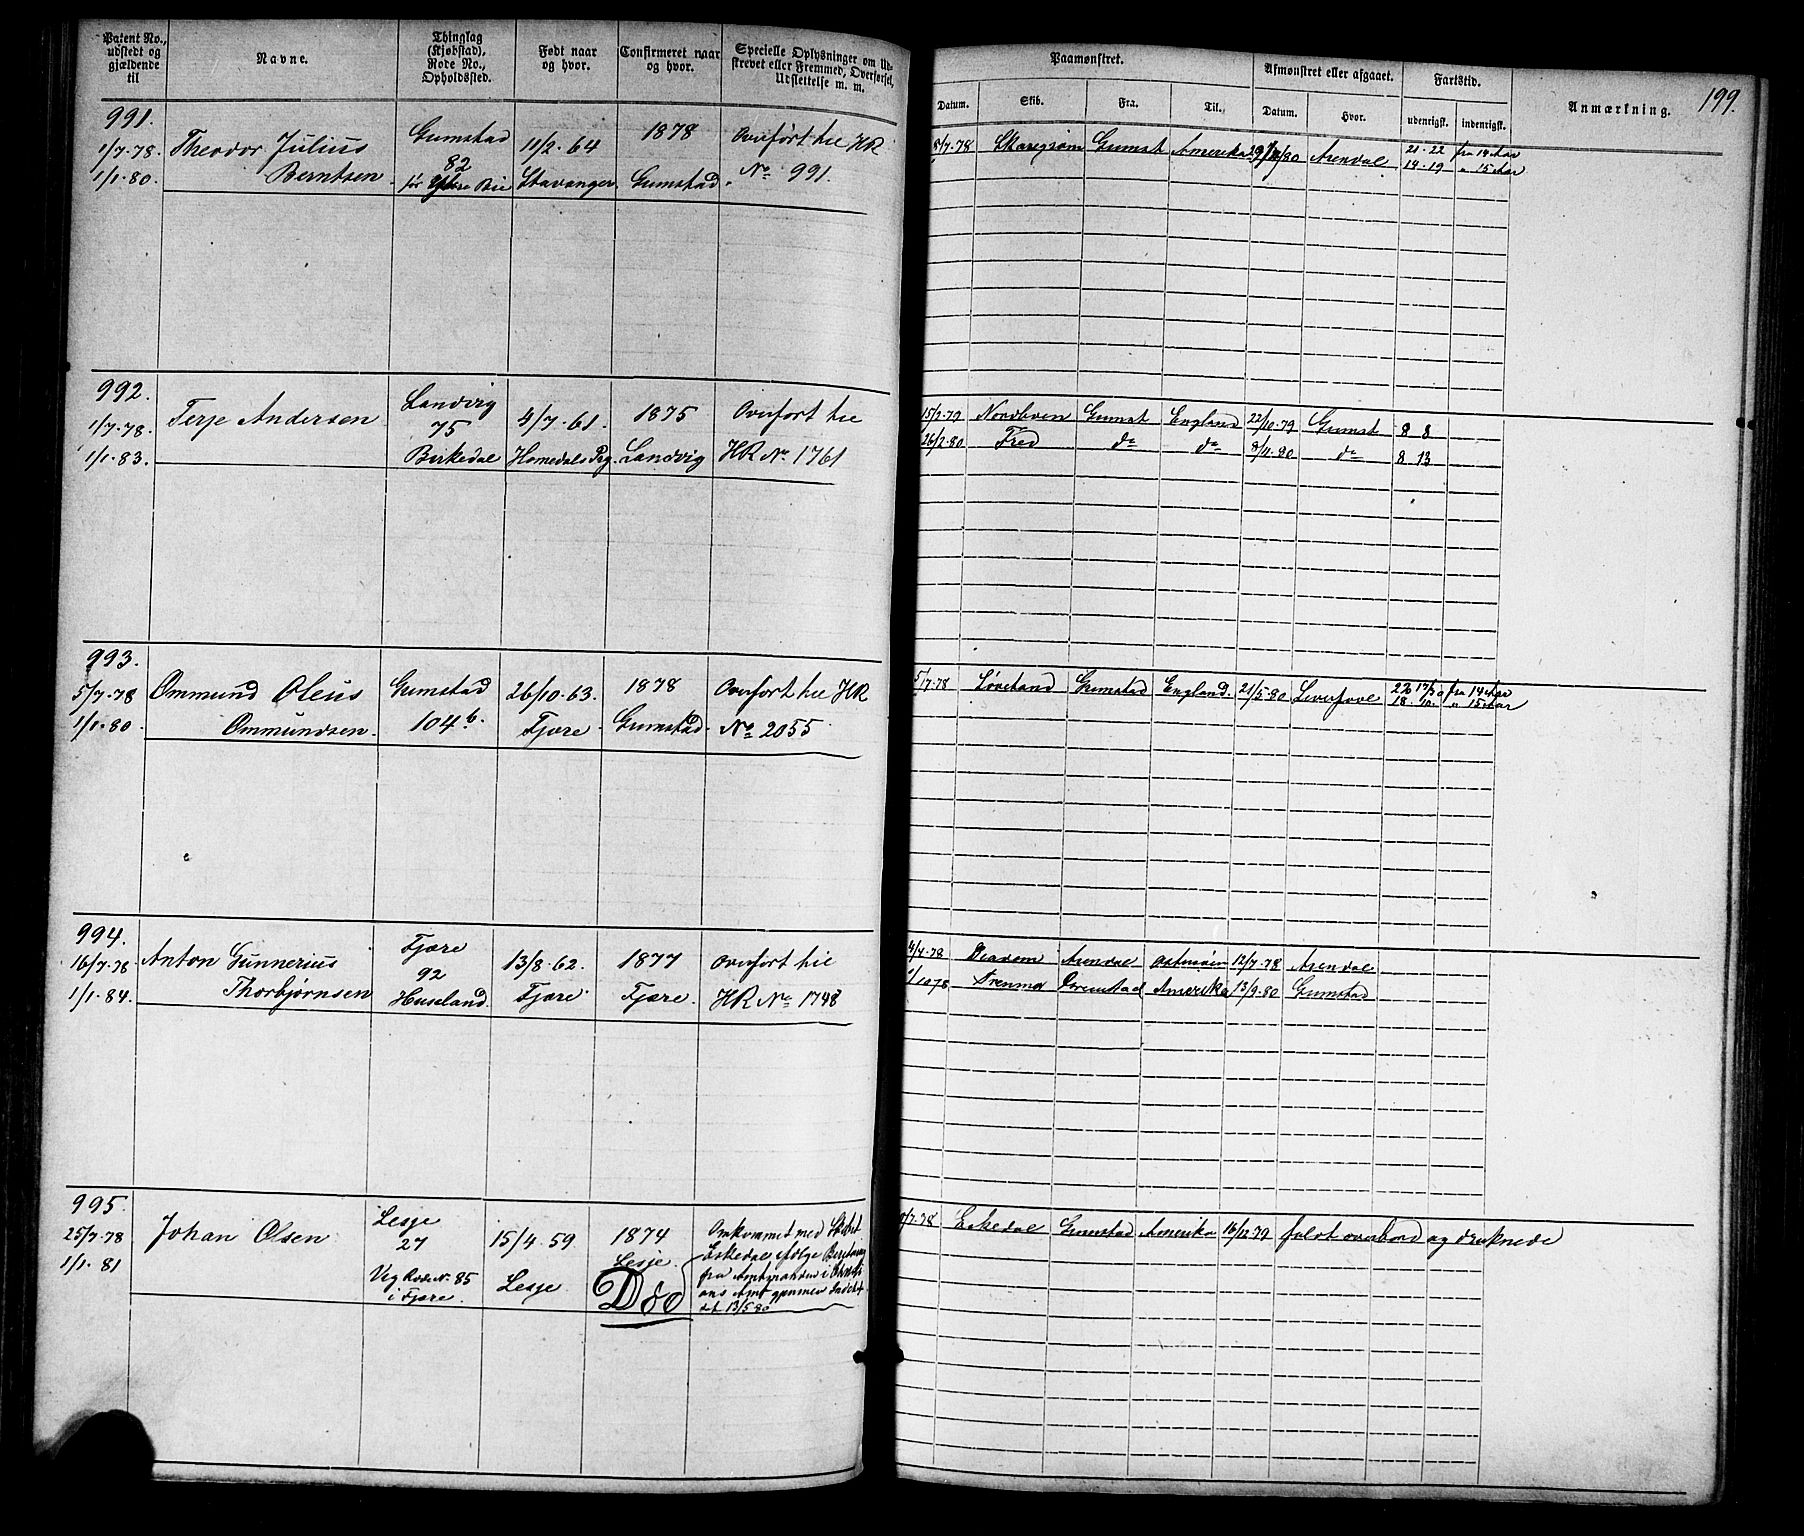 Patent No., udstedt og gjældende til
Navne.
Thinglag (Kjøbstad), Rode No., Opholdssted.
Født naar og hvor.
Confirmeret naar og hvor.
Specielle Oplysninger om Udskrevet eller Fremmed, Overførsel, Udslettelse m. m.
Paamønstret.
Datum.
Skib.
Fra.
Til.
Afmønstret eller afgaaet.
Datum.
Hvor.
Fartstid.
udenrigsk.
indenrigsk.
Anmærkning.
199.
991.
1/7·78.
1/1·80.
Theodor Julius
Berntsen
Grimstad
82
før Ytre Bie
11/2·64
Stavanger
1878
Grimstad
Overført hie HR
No 991.
8/7·78
Grimst
Amerika
Arendal
21·22 fra 14 Aar
14·19 " 15 Aar
992.
1/7·78.
1/1·83.
Terje Andersen
Landvig
75
Birkedal
4/7·61.
Homedals Pg.
1875
Landvig
Overført hie
HR No. 1761
15/2·79 Nordboen Grimst England 22/10·79 Grimst 8 8
26/2·80 Fred do do 8/4·80 do 8 13
993.
5/7·78
1/1·80.
Ommund Oleus
Ommundsen.
Grimstad
104 b.
26/10·63.
Fjære
1878
Grimstad
Overført hie HR
No 2055
5/7·78 Grimstad England. 21/5·80 Liverpool
fra 14 Aar
" 15 Aar
994.
16/7·78
1/1·84.
Anton Gunnerius
Thorbjørnsen
Fjære
92
Huseland.
13/8·62.
Fjære
1877
Fjære.
Overført hie
HR No 1748
4/7·78 Diadem Arendal Østersøen 12/7·78 Arendal
Amerika 13/9·80 Grimstad
995.
25/7·78
1/1·81
Johan Olsen
Lesje
27
Vig Rode No. 85
i Fjære.
15/4·59
Lesje
1874
Lesje.
Død
Omkommet med Skibet
Eskedal ifølge Beretning
fra Amtmanden i Christi
ans Amt gjennem Indedt
dt 13/5 80
Eskedal Grimstad Amerika 16/12·79 faldt overbord og druknede